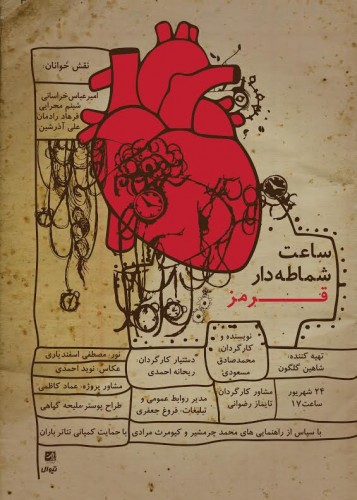 نقش خوانان:
امیرعباس خراسانی
شبنم محرابی
فرهاد رادمان
علی آذرشین
ساعت
شماطه‌دار
قرمز
تهیه کننده:
شاهین گلگون
نویسنده و
کارگردان:
محمدصادق
مسعودی
دستیار کارگردان:
ریحانه احمدی
نور: مصطفی اسفندیاری
عکاس: نوید احمدی
۲۴ شهریور
ساعت ۱۷
مشاور کارگردان
تایماز رضوانی
مدیر روابط عمومی و
تبلیغات: فروغ جعفری
مشاور پروژه: عماد کاظمی
طراح پوستر: ملیحه گیاهی
با سپاس از راهنمایی های محمد چرمشیر و کیومرث مرادی
با حمایت کمپانی تئاتر باران
تیوال